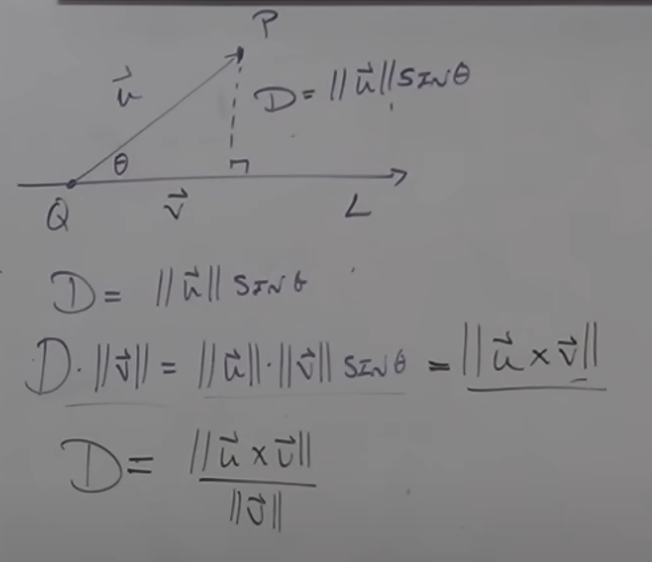 P
u⃗
D = ||u⃗|| SIN θ
θ
Q
v⃗
L
D = ||u⃗|| SIN θ
D · ||v⃗|| = ||u⃗|| · ||v⃗|| SIN θ = ||u⃗ × v⃗||
D = ||u⃗ × v⃗|| / ||v⃗||